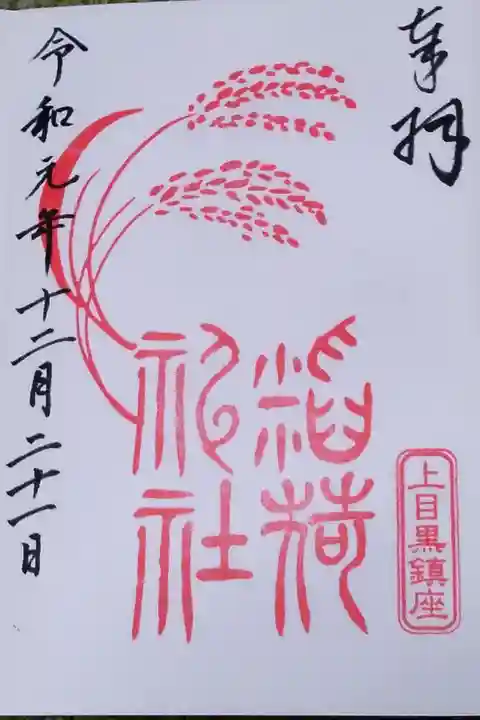 奉拝
上目黒鎮座
稲荷
神社
令和元年十二月二十一日